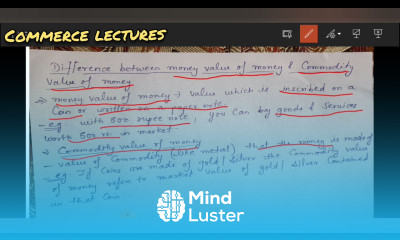 COMMERCE LECTURES
Difference between money value of money & Commodity
value of money
→ money value of money → value which is inscribed on a
Coin or written on a paper note
- eg. with 500 rupee note, you can by goods & services
worth 500 rs. in market.
→ Commodity value of money → that the money is made of
value of Commodity (like metal)
- eg. If Coins are made of gold/silver the Commodity value
of money refer to market value of gold/silver Contained
in that Coin
Mind
Luster